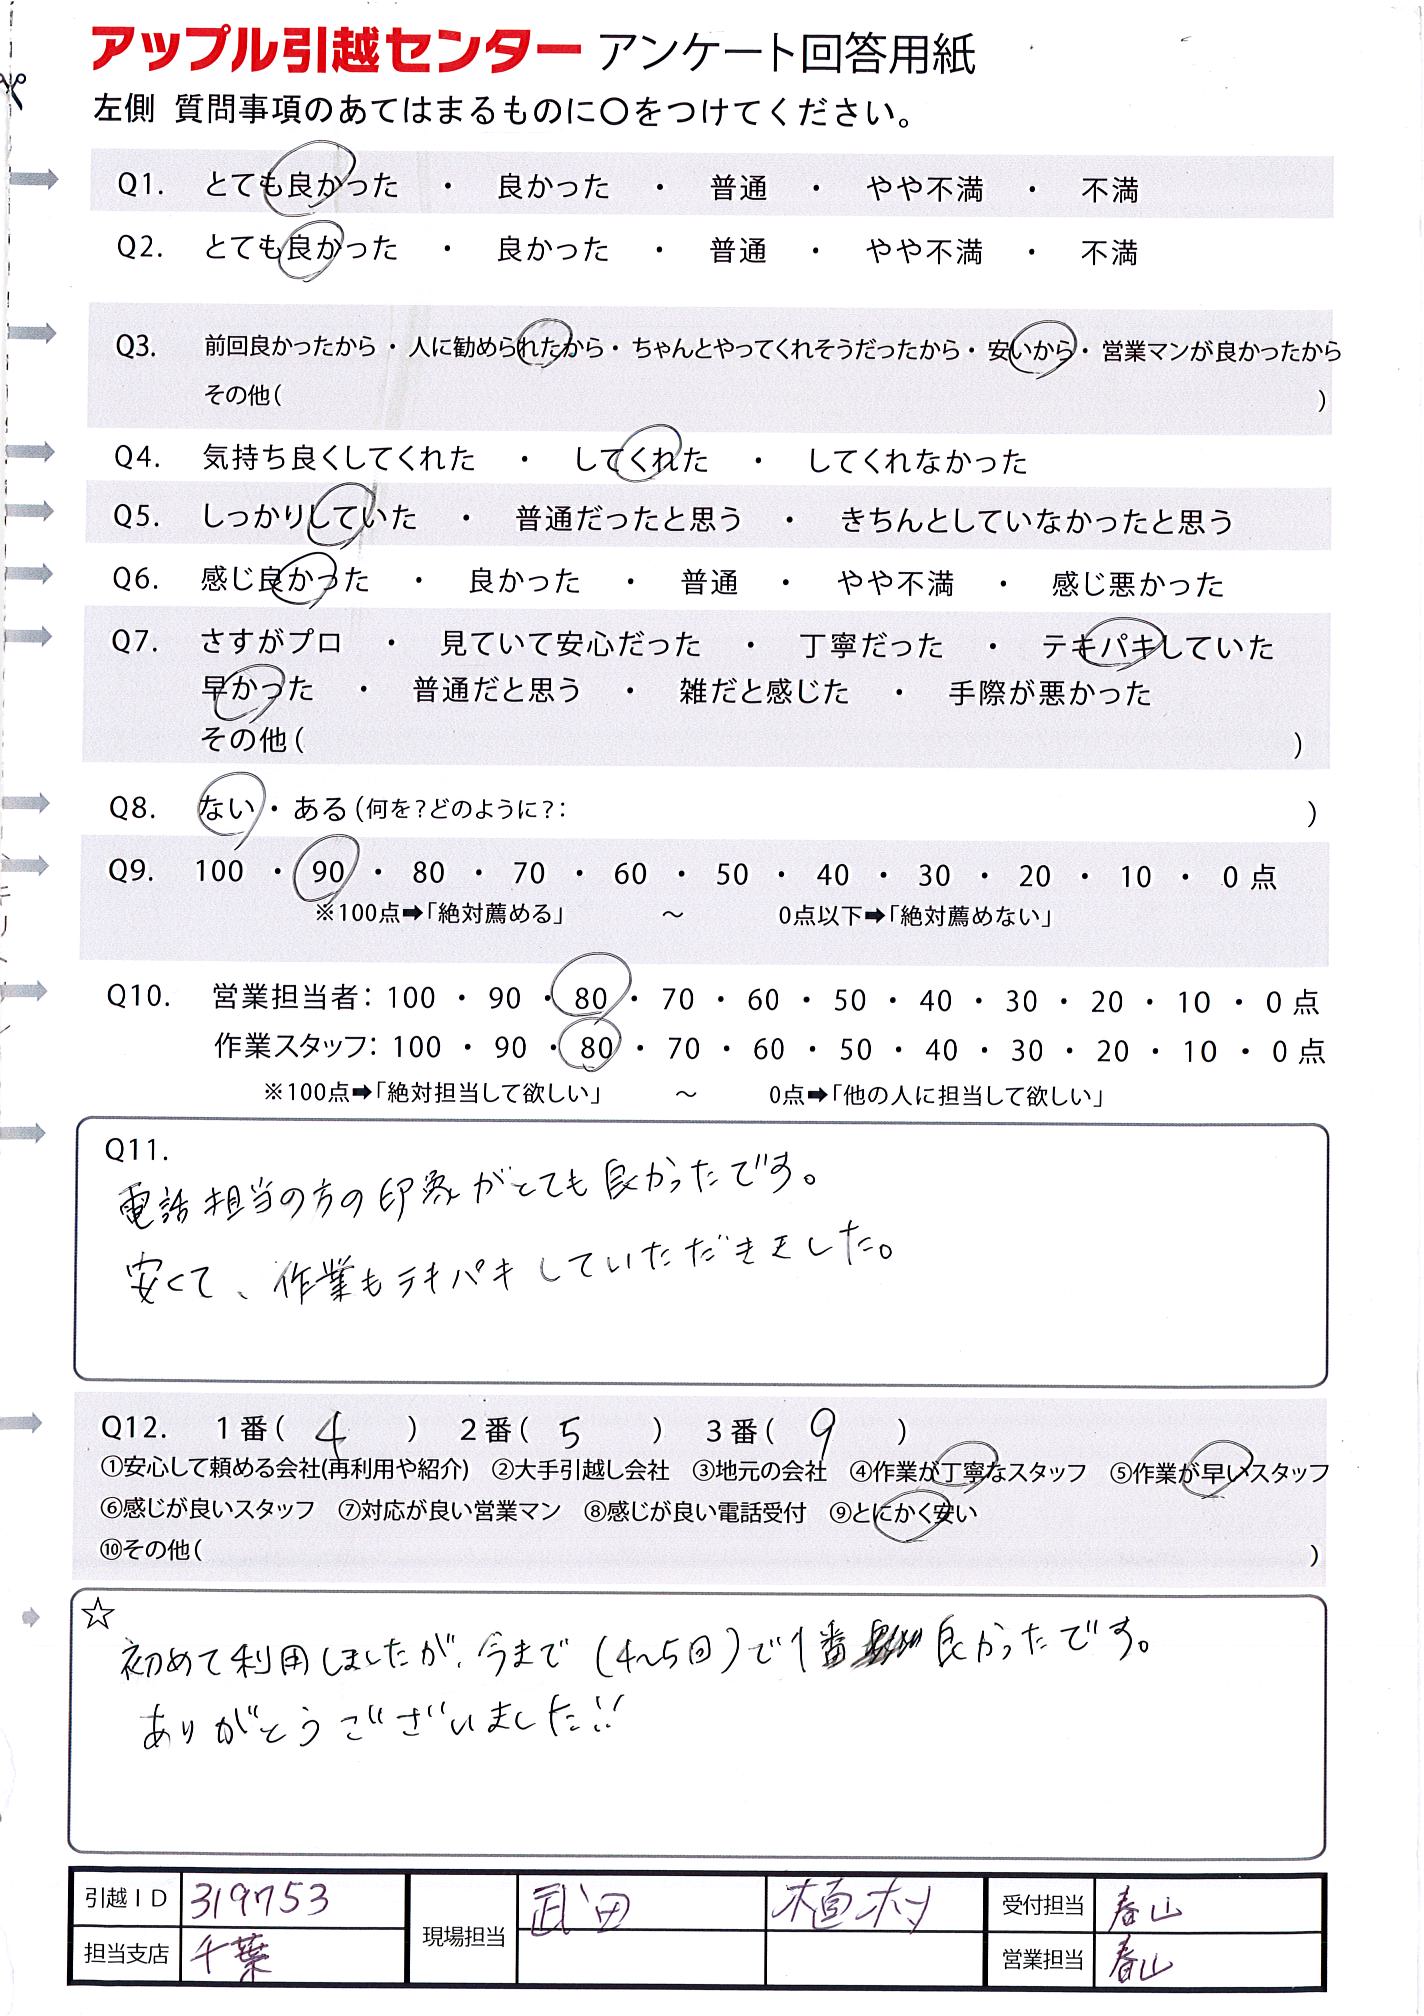 アップル引越センター アンケート回答用紙
左側 質問事項のあてはまるものに〇をつけてください。
Q1. とても良かった ・ 良かった ・ 普通 ・ やや不満 ・ 不満
Q2. とても良かった ・ 良かった ・ 普通 ・ やや不満 ・ 不満
Q3. 前回良かったから・人に勧められたから・ちゃんとやってくれそうだったから・安いから・営業マンが良かったから
その他( )
Q4. 気持ち良くしてくれた ・ してくれた ・ してくれなかった
Q5. しっかりしていた ・ 普通だったと思う ・ きちんとしていなかったと思う
Q6. 感じ良かった ・ 良かった ・ 普通 ・ やや不満 ・ 感じ悪かった
Q7. さすがプロ ・ 見ていて安心だった ・ 丁寧だった ・ テキパキしていた
早かった ・ 普通だと思う ・ 雑だと感じた ・ 手際が悪かった
その他( )
Q8. ない・ある(何を?どのように?: )
Q9. 100 ・ 90 ・ 80 ・ 70 ・ 60 ・ 50 ・ 40 ・ 30 ・ 20 ・ 10 ・ 0点
※100点➡「絶対薦める」 ～ 0点以下➡「絶対薦めない」
Q10. 営業担当者: 100 ・ 90 ・ 80 ・ 70 ・ 60 ・ 50 ・ 40 ・ 30 ・ 20 ・ 10 ・ 0点
作業スタッフ: 100 ・ 90 ・ 80 ・ 70 ・ 60 ・ 50 ・ 40 ・ 30 ・ 20 ・ 10 ・ 0点
※100点➡「絶対担当して欲しい」 ～ 0点➡「他の人に担当して欲しい」
Q11.
電話担当の方の印象がとても良かったです。
安くて、作業もテキパキしていただきました。
Q12. 1番( 4 ) 2番( 5 ) 3番( 9 )
①安心して頼める会社(再利用や紹介) ②大手引越し会社 ③地元の会社 ④作業が丁寧なスタッフ ⑤作業が早いスタッフ
⑥感じが良いスタッフ ⑦対応が良い営業マン ⑧感じが良い電話受付 ⑨とにかく安い
⑩その他( )
☆
初めて利用しましたが、今まで(4~5回)で1番 良かったです。
ありがとうございました!!
引越ID 319753 現場担当 武田 植村 受付担当 春山
担当支店 千葉 営業担当 春山